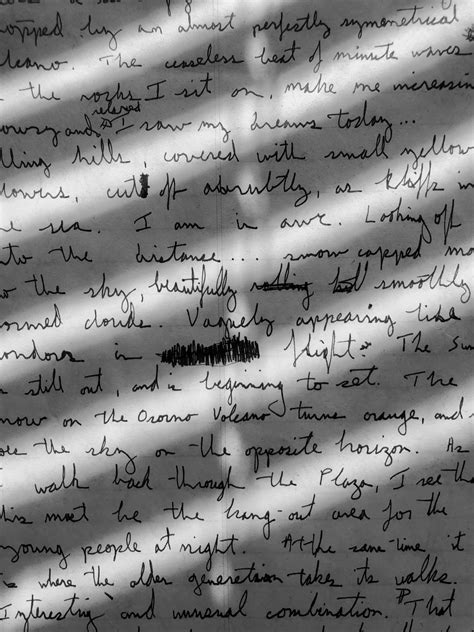 topped by an almost perfectly symmetrical
volcano. The ceaseless beat of minute waves
the rocks I sit on, make me increasin
relaxed
rowsy and I saw my dreams today...
lling hills, covered with small yellow
flowers, cut off abruptly, as kliffs in
the sea. I am in awe. Looking off
into the distance... snow capped mo
the sky, beautifully smoothly
ormed clouds. Vaguely appearing like
ondors in flight. The Sun
still out, and is beginning to set. The
now on the Osorno Volcano turns orange, and
the sky on the opposite horizon. As
I walk back through the Plaza, I see tha
this must be the hang-out area for the
young people at night. At the same time, it
is where the older generation takes its walks.
Interesting and unusual combination. That